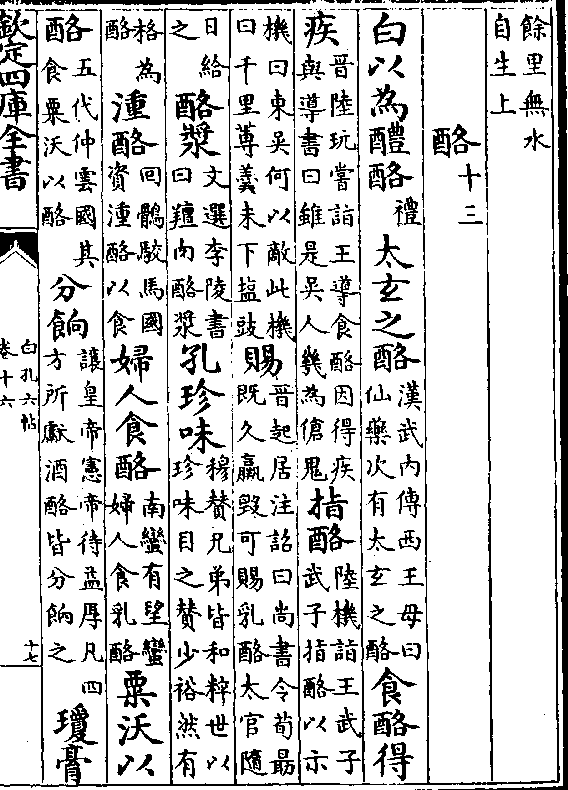 餘里無水自生上
酪十三
白以為醴酪禮太玄之酪漢武内傳西王母曰仙藥次有太玄之酪食酪得
疾晉陸玩嘗詣王導食酪因得疾與導書曰雖是吳人幾為傖鬼指酪陸機詣王武子武子指酪以示
機曰東吳何以敵此機曰千里蓴羹未下塩豉賜晉起居注詔曰尚書令荀朂既久羸毀可賜乳酪太官隨
日給之酪漿文選李陵書曰羶肉酪漿乳珍味穆賛兄弟皆和粹世以珍味目之賛少裕然有
格為酪湩酪回鶻駮馬國資湩酪以食婦人食酪南蠻有望蠻婦人食乳酪粟沃以
酪五代仲雲國其食粟沃以酪分餉讓皇帝憲帝待益厚凡四方所獻酒酪皆分餉之瓊膏
欽定四庫全書
白孔六帖
卷十六
十七